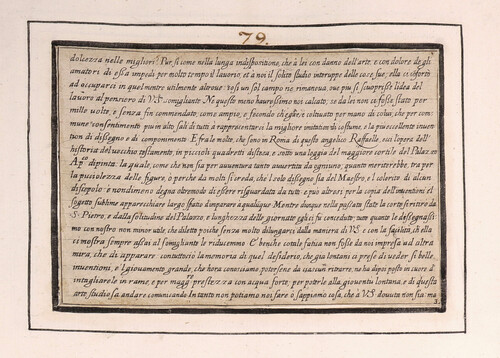 79.
dolcezza nelle migliori? Pur, si come nella lunga indispositione, che à lei con danno dell'arte, e con dolore degli
amatori di essa impedì per molto tempo il lauoro, et à noi il solito studio interruppe delle cose sue; ella ci esfortò
ad occuparci in quel mentre utilmente altroue: così un sol campo ne rimaneua, oue più si scuoprisse l'idea del
lauoro al pensiero di V.S. somigliante. Ne questo meno haueressimo noi calcato; se da lei non ci fosse stato per
mille uolte, e senza fin commendato, come ampio, e fecondo ch'egli è, coltiuato per mano di colui, che per com=
mune consentimento più in alto salì di tutti à rappresentarci la migliore imitation di costume, e la più eccellente inuen=
tion di disegno, e di componimenti. E fra le molte, che sono in Roma di questo angelico Raffaelle, scei l'opera dell'
historia del uecchio testamento, in piccioli quadretti distesa, e sotto una loggia del maggiore cortile del Palazzo
Ap.co dipinta. la quale, come che non sia per auuentura tanto auuertita da ognuno, quanto meritarebbe, tra per
la picciolezza delle figure, ò perche da molti si creda, che 'l solo disegno sia del Maestro, e 'l colorito di alcun
discepolo: è nondimeno degna oltremodo di essere risguardata da tutti, e può altresì, per la copia dell'inuentioni, e 'l
sogetto sublime apparecchiare largo stadio d'imparare à qualunque. Mentre dunque nella passata state la corte si ritirò da
S. Pietro, e dalla solitudine del Palazzo, e lunghezza delle giornate egli ci fù conceduto; tutte quante le desegnasi=
mo con nostro non minor utile, che diletto; poiche senza molto dilungarci dalla maniera di V.S. e con la facilità, ch'ella
ci mostra sempre assai al somigliante le riducemmo. E benche cotale fatica non fosse da noi impresa ad altra
mira, che di apparare: con tutto ciò la memoria di quel desiderio, che già lontani ci prese di ueder sì belle
inuentioni, e 'l giouamento grande, che hora conosciamo potersene da ciascun ritrarre, ne ha dipoi posto in cuore d'
intagliarle in rame, e per magg.re prestezza con acqua forte, per poterle alla giouentù lontana, e di questa
arte studiosa andare comunicando. In tanto non potiamo noi fare, ò sappiamo cosa, che à V.S. douuta non sia; ma
3.